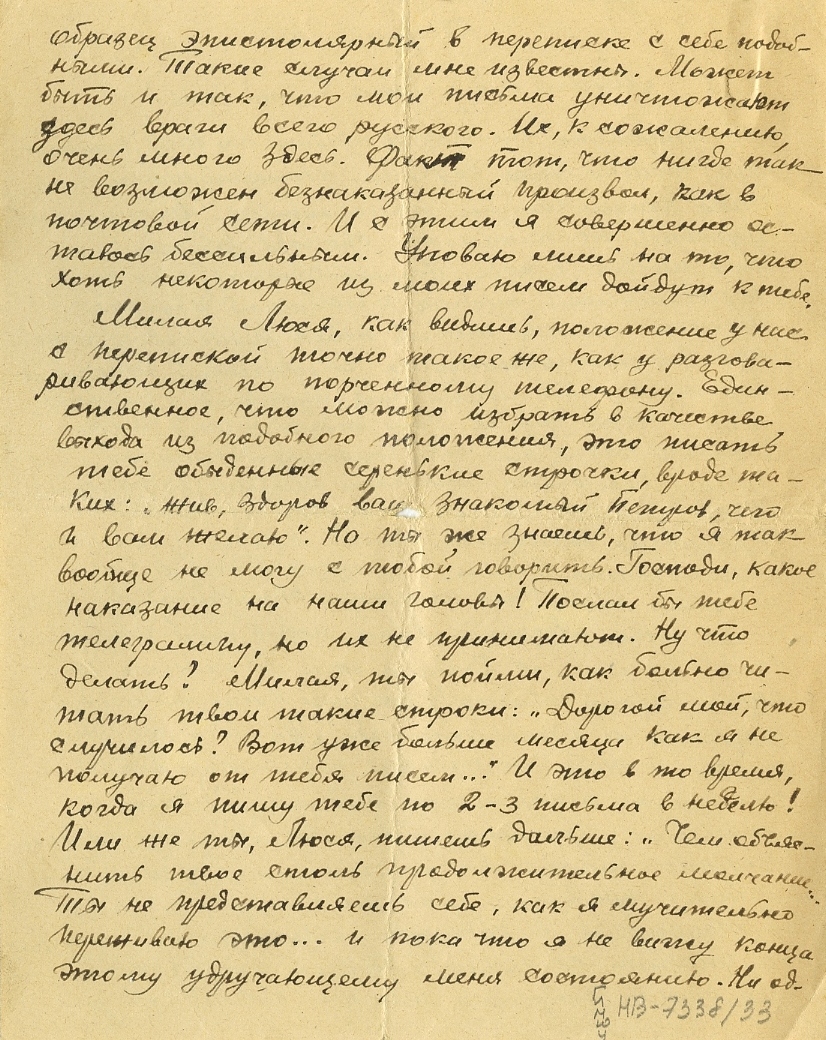 образец эпистолярный в переписке с себе подоб-
ными. Такие случаи мне известны. Может
быть и так, что мои письма уничтожают
здесь враги всего русского. Их, к сожалению,
очень много здесь. Факт тот, что нигде так
не возможен безнаказанный произвол, как в
почтовой сети. И с этим я совершенно ос-
таюсь бессильным. Уповаю лишь на то, что
хоть некоторые из моих писем дойдут к тебе.
Милая Люся, как видишь, положение у нас
с перепиской точно такое же, как у разгова-
ривающих по порченному телефону. Един-
ственное, что можно избрать в качестве
выхода из подобного положения, это писать
тебе обыденные серенькие строчки, вроде та-
ких: „Жив, здоров ваш знакомый Петров, чего
и вам желаю". Но ты же знаешь, что я так
вообще не могу с тобой говорить. Господи, какое
наказание на наши головы! Послал бы тебе
телеграмму, но их не принимают. Ну что
делать? Милая, ты пойми, как больно чи-
тать твои такие строки: „Дорогой мой, что
случилось? Вот уже больше месяца как я не
получаю от тебя писем..." И это в то время,
когда я пишу тебе по 2-3 письма в неделю!
Или же ты, Люся, пишешь дальше: „Чем объяс-
нить твое столь продолжительное молчание...
Ты не представляешь себе, как я мучительно
переживаю это... и пока что я не вижу конца
этому удручающему меня состоянию. Ни од-
НВ-7338/33